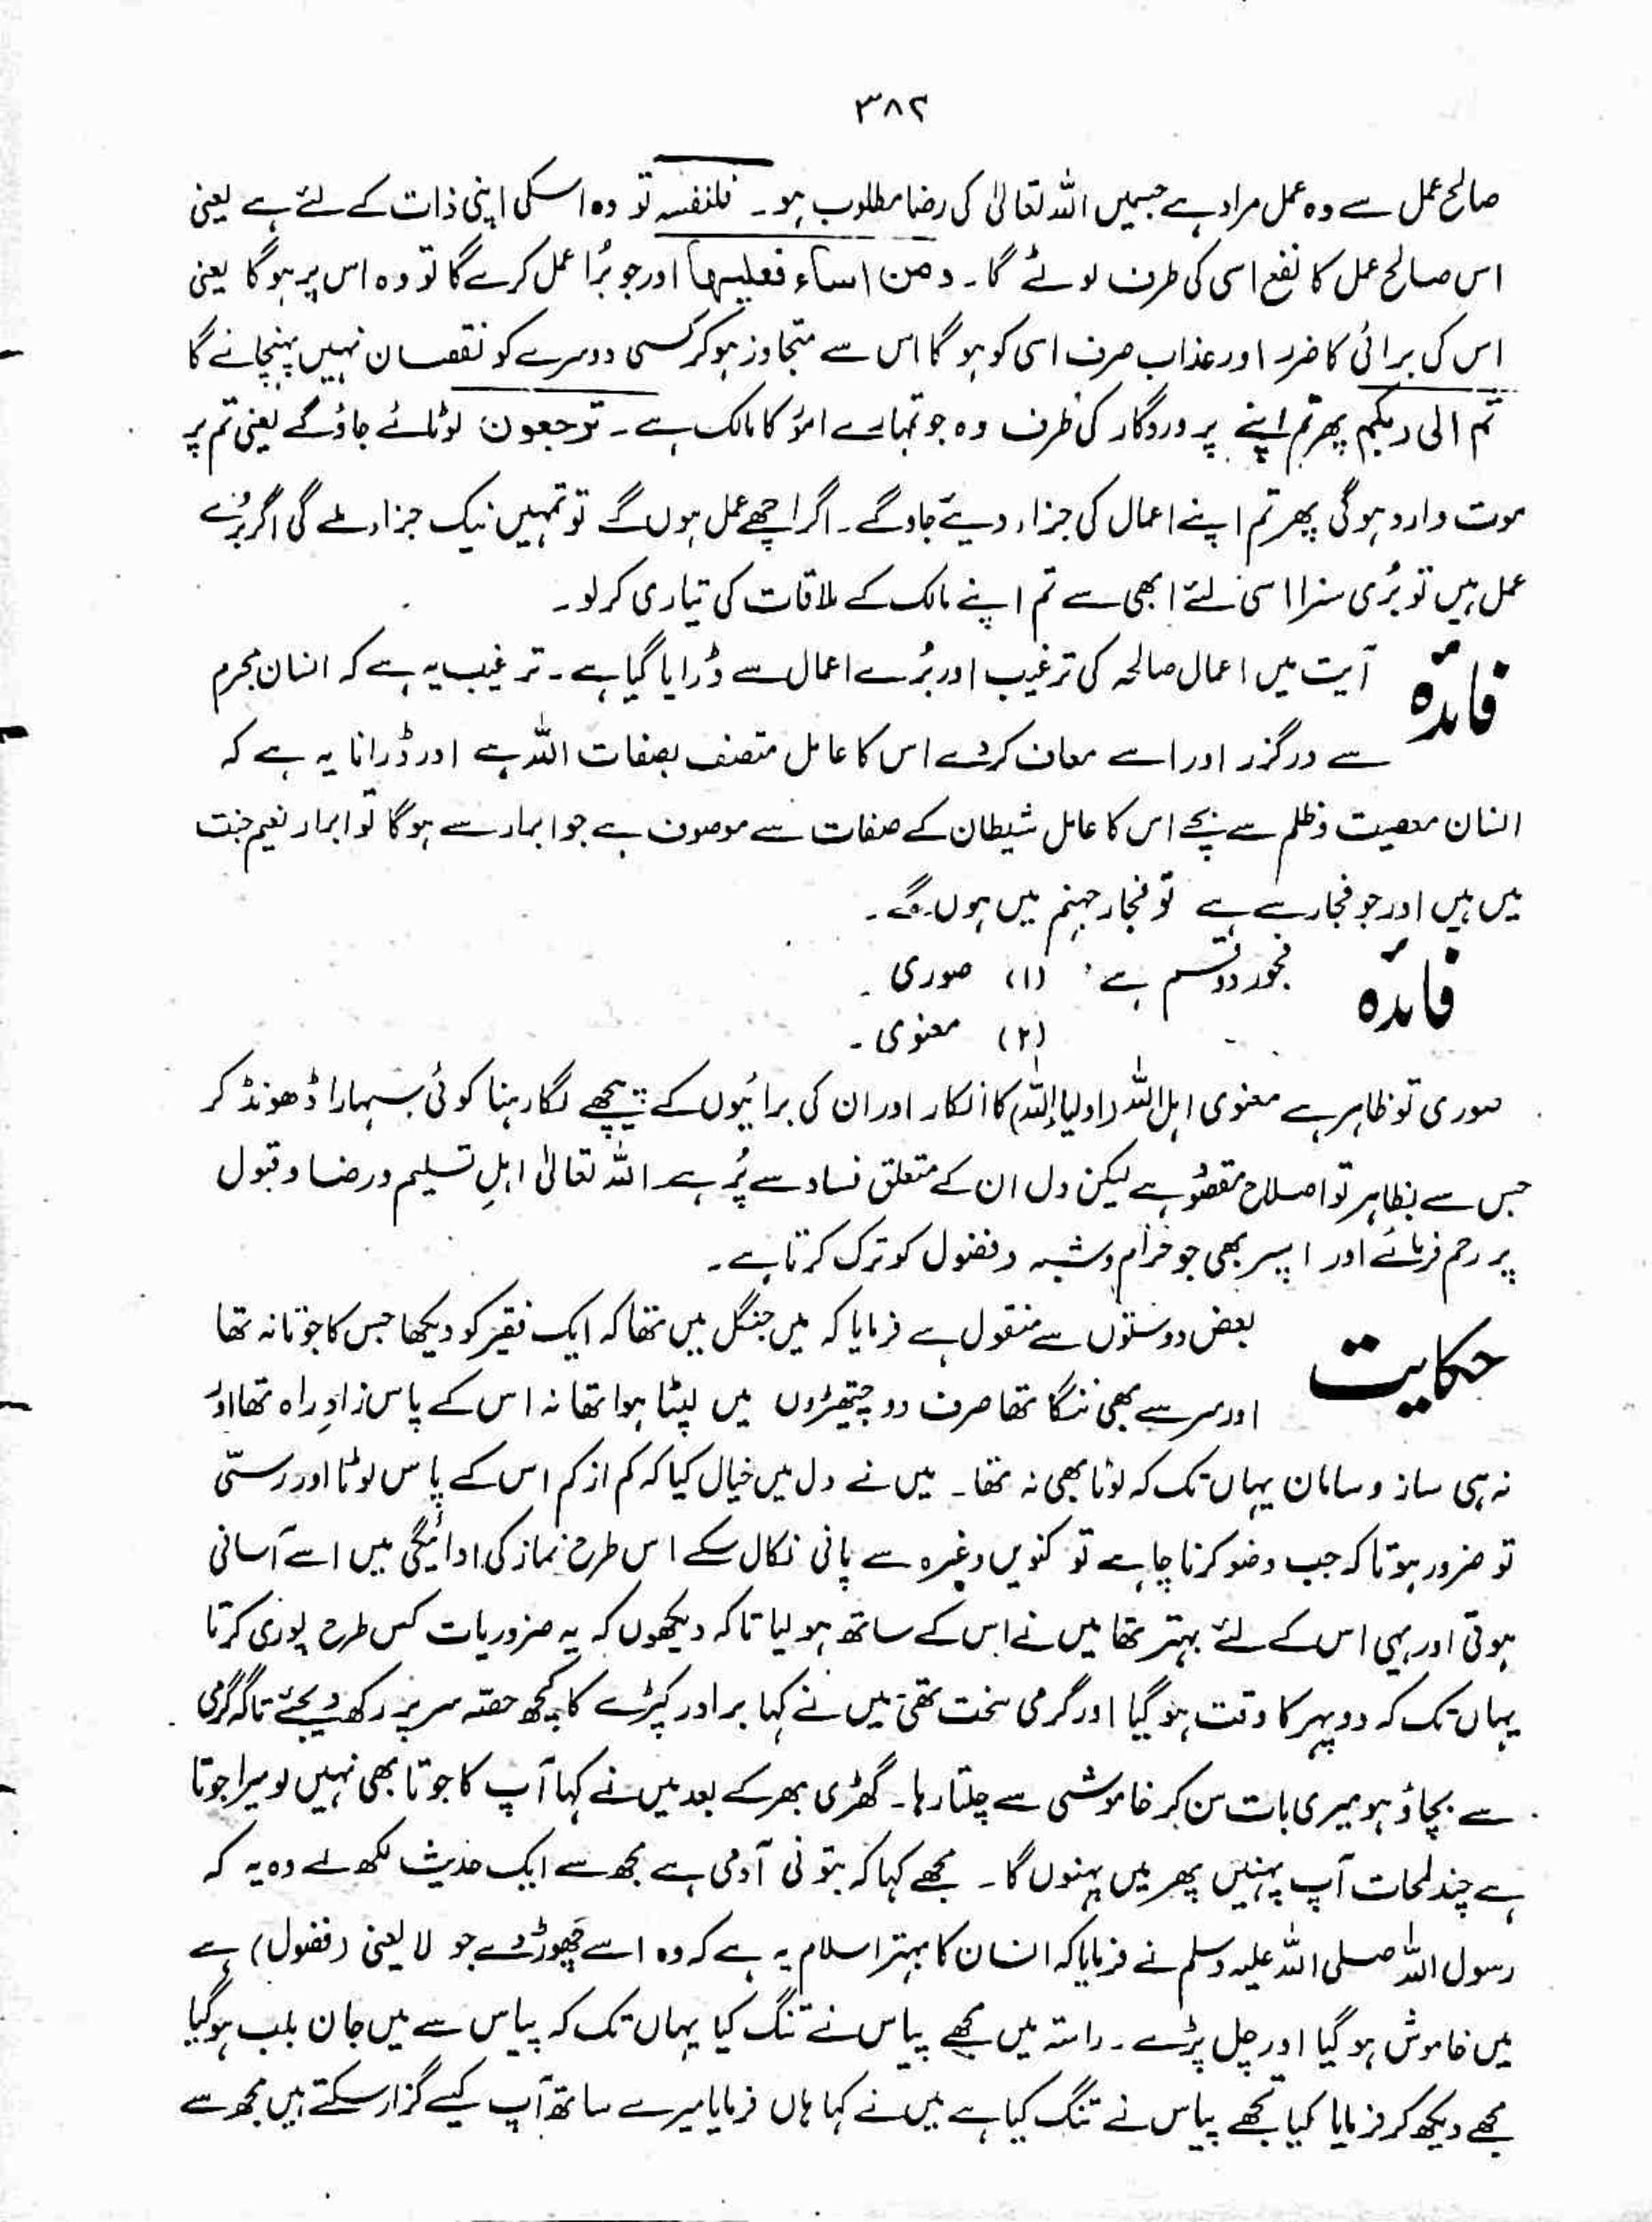 ۳۸۲
صالح عمل سے وہ عمل مراد ہے جسمیں اللہ تعالیٰ کی رضا مطلوب ہو۔ فلنفسہ تو وہ اسکی اپنی ذات کے لئے ہے یعنی
اس صالح عمل کا نفع اسی کی طرف لوٹے گا۔ ومن اساء فعلیہا اور جو بُرا عمل کرے گا تو وہ اس پر ہو گا یعنی
اس کی برائی کا ضرر اور عذاب صرف اسی کو ہو گا اس سے متجاوز ہو کر کسی دوسرے کو نقصان نہیں پہنچانے گا
ثم الی ربکم پھر تم اپنے پروردگار کی طرف وہ جو تمہارے امور کا مالک ہے۔ ترجعون لوٹائے جاؤ گے یعنی تم پر
موت وارد ہو گی پھر تم اپنے اعمال کی جزاء دیئے جاوگے۔ اگر اچھے عمل ہوں گے تو تمہیں نیک جزاء ملے گی اگر بُرے
عمل ہیں تو بُری سزا اسی لئے ابھی سے تم اپنے مالک کے ملاقات کی تیاری کر لو۔
فائدہ آیت میں اعمال صالحہ کی ترغیب اور بُرے اعمال سے ڈرایا گیا ہے۔ ترغیب یہ ہے کہ انسان مجرم
سے درگزر اور اسے معاف کر دے اس کا عامل متصف بصفات اللہ ہے اور ڈرانا یہ ہے کہ
انسان معصیت و ظلم سے بچے اس کا عامل شیطان کے صفات سے موصوف ہے جو ابرار سے ہو گا تو ابرار نعیم جنت
میں ہیں اور جو فجار سے ہے تو فجار جہنم میں ہوں گے۔
فائدہ فجور دو قسم ہے (۱) صوری۔
(۲) معنوی۔
صوری تو ظاہر ہے معنوی اہل اللہ (اولیاء اللہ) کا انکار اور ان کی برائیوں کے پیچھے لگا رہنا کوئی سہارا ڈھونڈ کر
جس سے بظاہر تو اصلاح مقصود ہے لیکن دل ان کے متعلق فساد سے پُر ہے اللہ تعالیٰ اہلِ تسلیم و رضا و قبول
پر رحم فرمائے اور اپسر بھی جو حرام و شبہ و فضول کو ترک کرتا ہے۔
حکایت بعض دوستوں سے منقول ہے فرمایا کہ میں جنگل میں تھا کہ ایک فقیر کو دیکھا جس کا جوتا نہ تھا
اور سر سے بھی ننگا تھا صرف دو چیتھڑوں میں لپٹا ہوا تھا نہ اس کے پاس زادِ راہ تھا اور
نہ ہی ساز و سامان یہاں تک کہ لوٹا بھی نہ تھا۔ میں نے دل میں خیال کیا کہ کم از کم اس کے پاس لوٹا اور رسّی
تو ضرور ہوتا کہ جب وضو کرنا چاہے تو کنویں وغیرہ سے پانی نکال سکے اس طرح نماز کی ادائیگی میں اسے آسانی
ہوتی اور یہی اس کے لئے بہتر تھا میں نے اس کے ساتھ ہو لیا تاکہ دیکھوں کہ یہ ضروریات کس طرح پوری کرتا
یہاں تک کہ دوپہر کا وقت ہو گیا اور گرمی سخت تھی میں نے کہا برادر کپڑے کا کچھ حصّہ سر پر رکھ دیجئے تاکہ گرمی
سے بچاؤ ہو میری بات سن کر خاموشی سے چلتا رہا۔ گھڑی بھر کے بعد میں نے کہا آپ کا جوتا بھی نہیں لو میرا جوتا
ہے چند لمحات آپ پہنیں پھر میں پہنوں گا۔ مجھے کہا کہ بتونی آدمی ہے مجھ سے ایک حدیث لکھ لے وہ یہ کہ
رسول اللہ صلی اللہ علیہ وسلم نے فرمایا کہ انسان کا بہتر اسلام یہ ہے کہ وہ اسے چھوڑ دے جو لا یعنی (فضول) ہے
میں خاموش ہو گیا اور چل پڑے۔ راستہ میں مجھے پیاس نے تنگ کیا یہاں تک کہ پیاس سے میں جان بلب ہو گیا
مجھے دیکھ کر فرمایا کیا تجھے پیاس نے تنگ کیا ہے میں نے کہا ہاں فرمایا میرے ساتھ آپ کیسے گزار سکتے ہیں مجھ سے